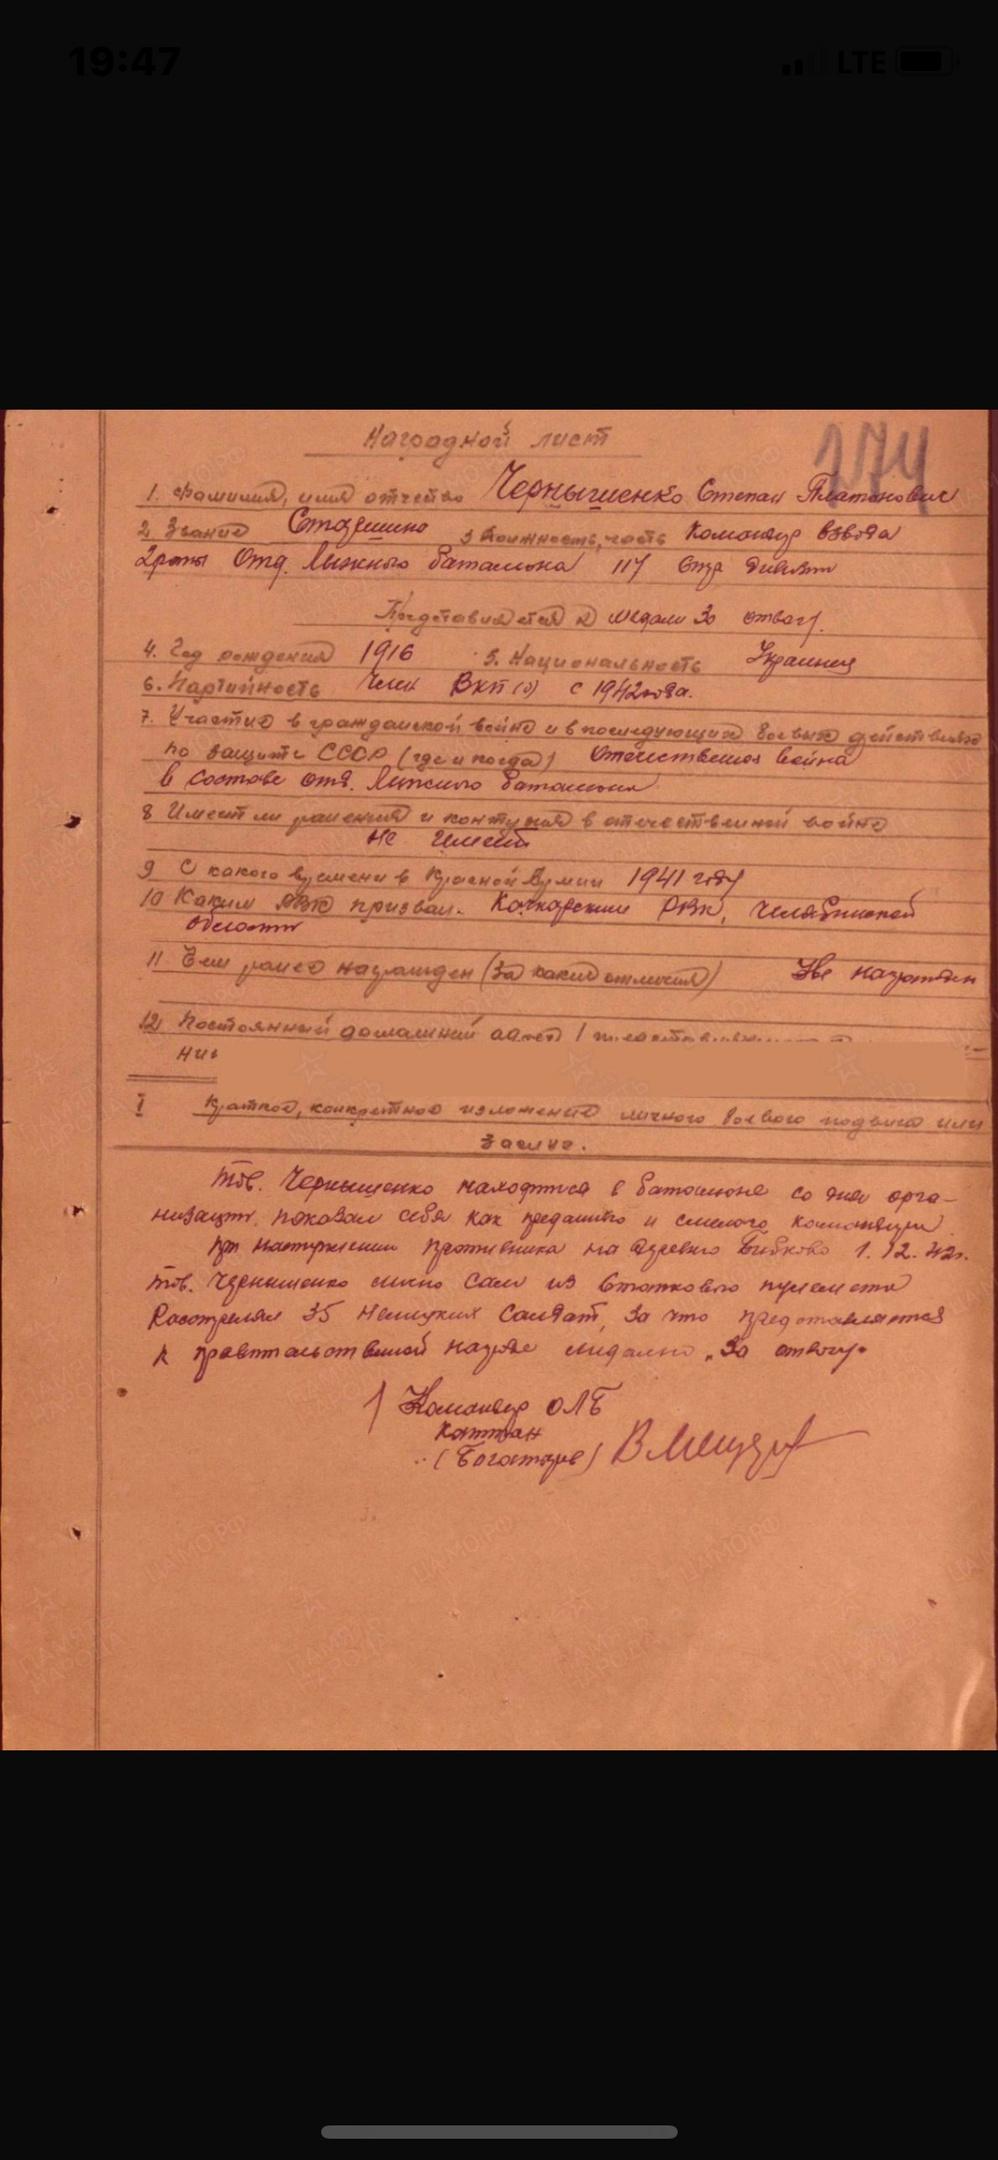 19:47
LTE
174
Наградной лист
1. Фамилия, имя отчество Чернышенко Степан Платонович
2 Звание Старшина 3 Должность, часть Командир взвода
2 роты Отд. Лыжного батальона 117 Стр дивизии
Представляется к медали За отвагу.
4. Год рождения 1916 5. Национальность Украинец
6. Партийность Член ВКП(б) с 1942 года.
7. Участие в гражданской войне и в последующих боевых действиях
по защите СССР (где и когда) Отечественная война
в составе отд. Лыжного батальона
8 Имеет ли ранения и контузия в отечественной войне
не имеет
9 С какого времени в Красной Армии 1941 году
10 Каким РВК призван. Качкарским РВК, Челябинской
области
11 Чем ранее награжден (за какие отличия) Не награжден
12 Постоянный домашний адрес
I Краткое, конкретное изложение личного боевого подвига или
заслуг.
Тов. Чернышенко находится в батальоне со дня орга-
низации. показал себя как преданного и смелого командира
при наступлении противника на деревню 1.12.42г.
тов. Чернышенко лично сам из станкового пулемета
Расстрелял 35 немецких солдат, за что представляется
к правительственной награде медалью „За отвагу"
Командир ОЛБ
капитан
ЦАМО.РФ